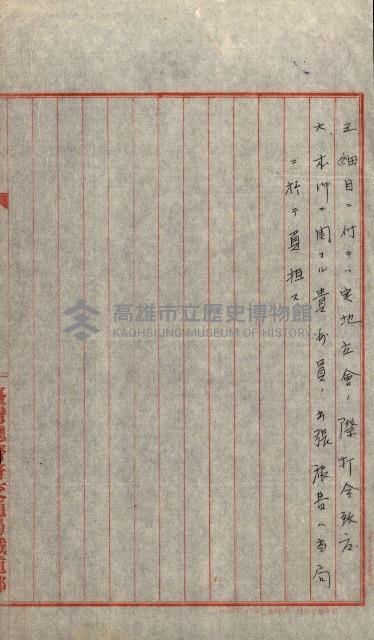 五、細目ニ付テハ実地立會ノ際打合致度
六、本件ニ関スル貴州員ノ出張旅費ハ当局
ニ於テ負担ス
高雄市立歷史博物館
KAOHSIUNG MUSEUM OF HISTORY
臺灣總督府交通局鐵道部